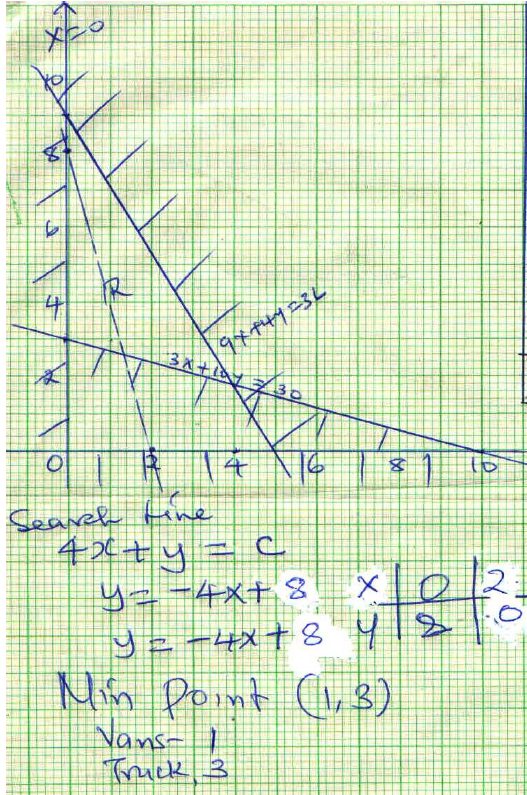 x=0
10
8
6
R
4
9x+4y=36
3x+10y=30
2
0 2 4 6 8 10
Search line
4x+y=c
y=-4x+8 x 0 2
y=-4x+8 y 8 0
Min Point (1,3)
Vans- 1
Truck, 3